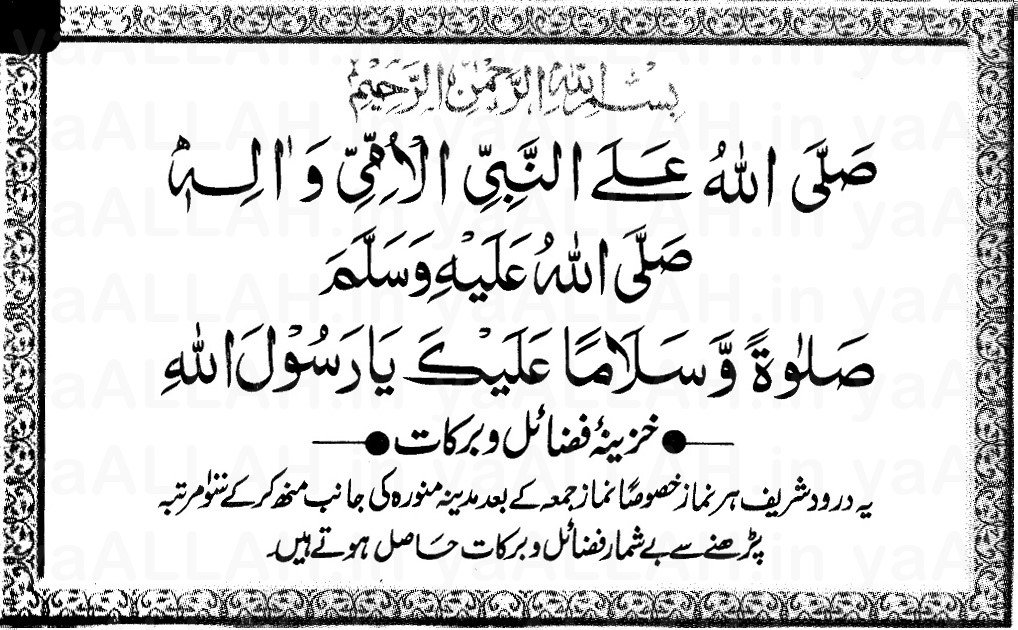 بِسْمِ اللهِ الرَّحْمٰنِ الرَّحِيْمِ
صَلَّى اللهُ عَلَى النَّبِيِّ الْاُمِّيِّ وَاٰلِهٖ
صَلَّى اللهُ عَلَيْهِ وَسَلَّمَ
صَلٰوةً وَّسَلَامًا عَلَيْكَ يَا رَسُوْلَ اللهِ
خزینۂ فضائل و برکات
یہ درود شریف ہر نماز خصوصًا نماز جمعہ کے بعد مدینہ منورہ کی جانب منھ کر کے سَو مرتبہ
پڑھنے سے بے شمار فضائل و برکات حاصل ہوتے ہیں۔
yaALLAH.in